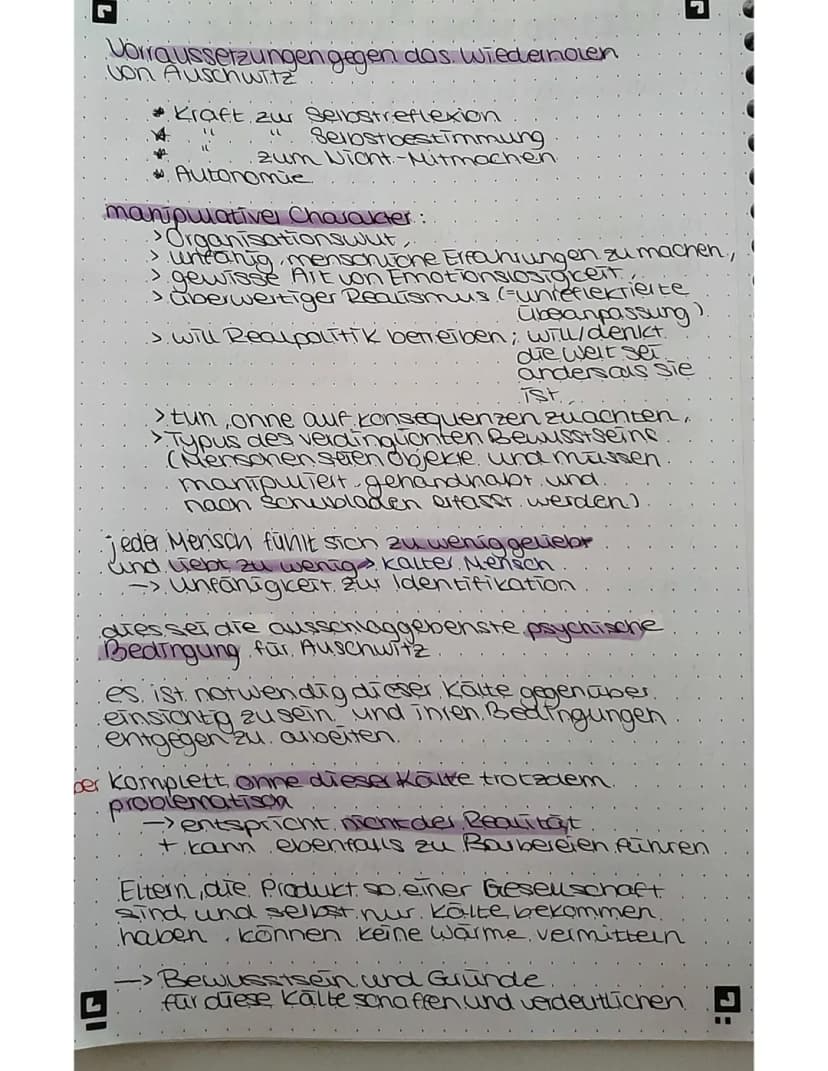 Vorraussetzungen gegen das Wiederholen
von Auschwitz
* Kraft zur Selbstreflexion
* " " Selbstbestimmung
* " zum Nicht-Mitmachen
* Autonomie
manipulativer Charakter:
> Organisationswut,
> unfähig, menschliche Erfahrungen zu machen,
> gewisse Art von Emotionslosigkeit,
> überwertiger Realismus (=unreflektierte
Übeanpassung)
> will Realpolitik betreiben; will/denkt
die Welt sei
anders als sie
ist,
> tun, ohne auf Konsequenzen zu achten,
> Typus des verdinglichten Bewusstseins
(Menschen seien Objekte und müssen
manipuliert, gehandhabt und
nach Schubladen erfasst werden)
jeder Mensch fühlt sich zu wenig geliebt
und liebt zu wenig → kalter Mensch
→ Unfähigkeit zur Identifikation
dies sei die ausschlaggebenste psychische
Bedingung für Auschwitz
es ist notwendig dieser Kälte gegenüber
einsichtig zu sein und ihren Bedingungen
entgegen zu arbeiten.
ber komplett ohne dieser Kälte trotzdem
problematisch
→ entspricht nicht der Realität
+ kann ebenfalls zu Barbereien führen
Eltern, die Produkt so einer Gesellschaft
sind und selbst nur Kälte bekommen
haben, können keine Wärme vermitteln
→ Bewusstsein und Gründe
für diese Kälte schaffen und verdeutlichen